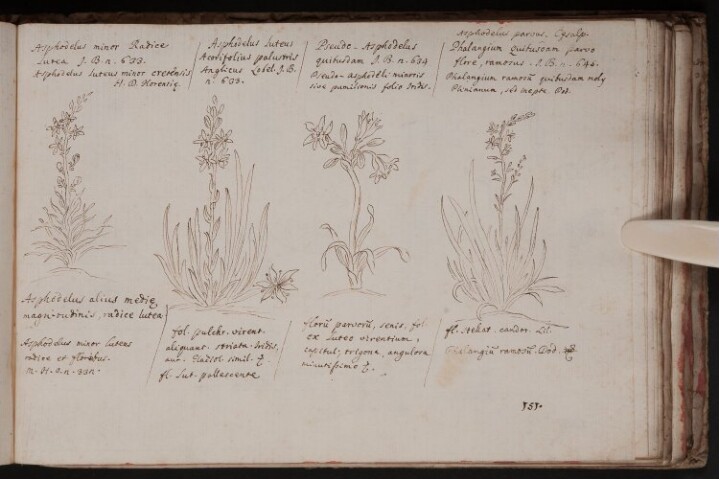 Asphodelus minor Radice
Lutea J. B. n. 633.
Asphodelus luteus minor cretensis
H. D. Florentię
Asphodelus luteus
Acorifolius palustris
Anglicus Lobel. J. B.
n. 633.
Pseudo-Asphodelus
quibusdam J. B. n. 634
Pseudo-asphodeli minoris
sive pumilionis folio Iridis.
Asphodelus parvus. Cęsalp.
Phalangium Quibusdam parvo
flore, ramosus. J. B. n. 634.
Phalangium ramosū quibusdam moly
Plinianum, sed inepte. Dod.
Asphodelus alius medię
magnitudinis, radice lutea
Asphodelus minor luteus
radice et floribus.
fol. pulchr. virent.
aliquant. striata Iridis,
simil.
fl. Lut. pallescente
florū parvorū, senis, fol.
ex luteo virentium,
trigona, angulosa
minutissimo
fl. stellat. candor. Lil.
Phalangiū ramosū. Dod.
151.